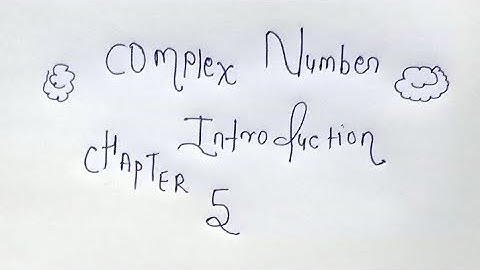 Complex Number
Introduction
CHAPTER
5